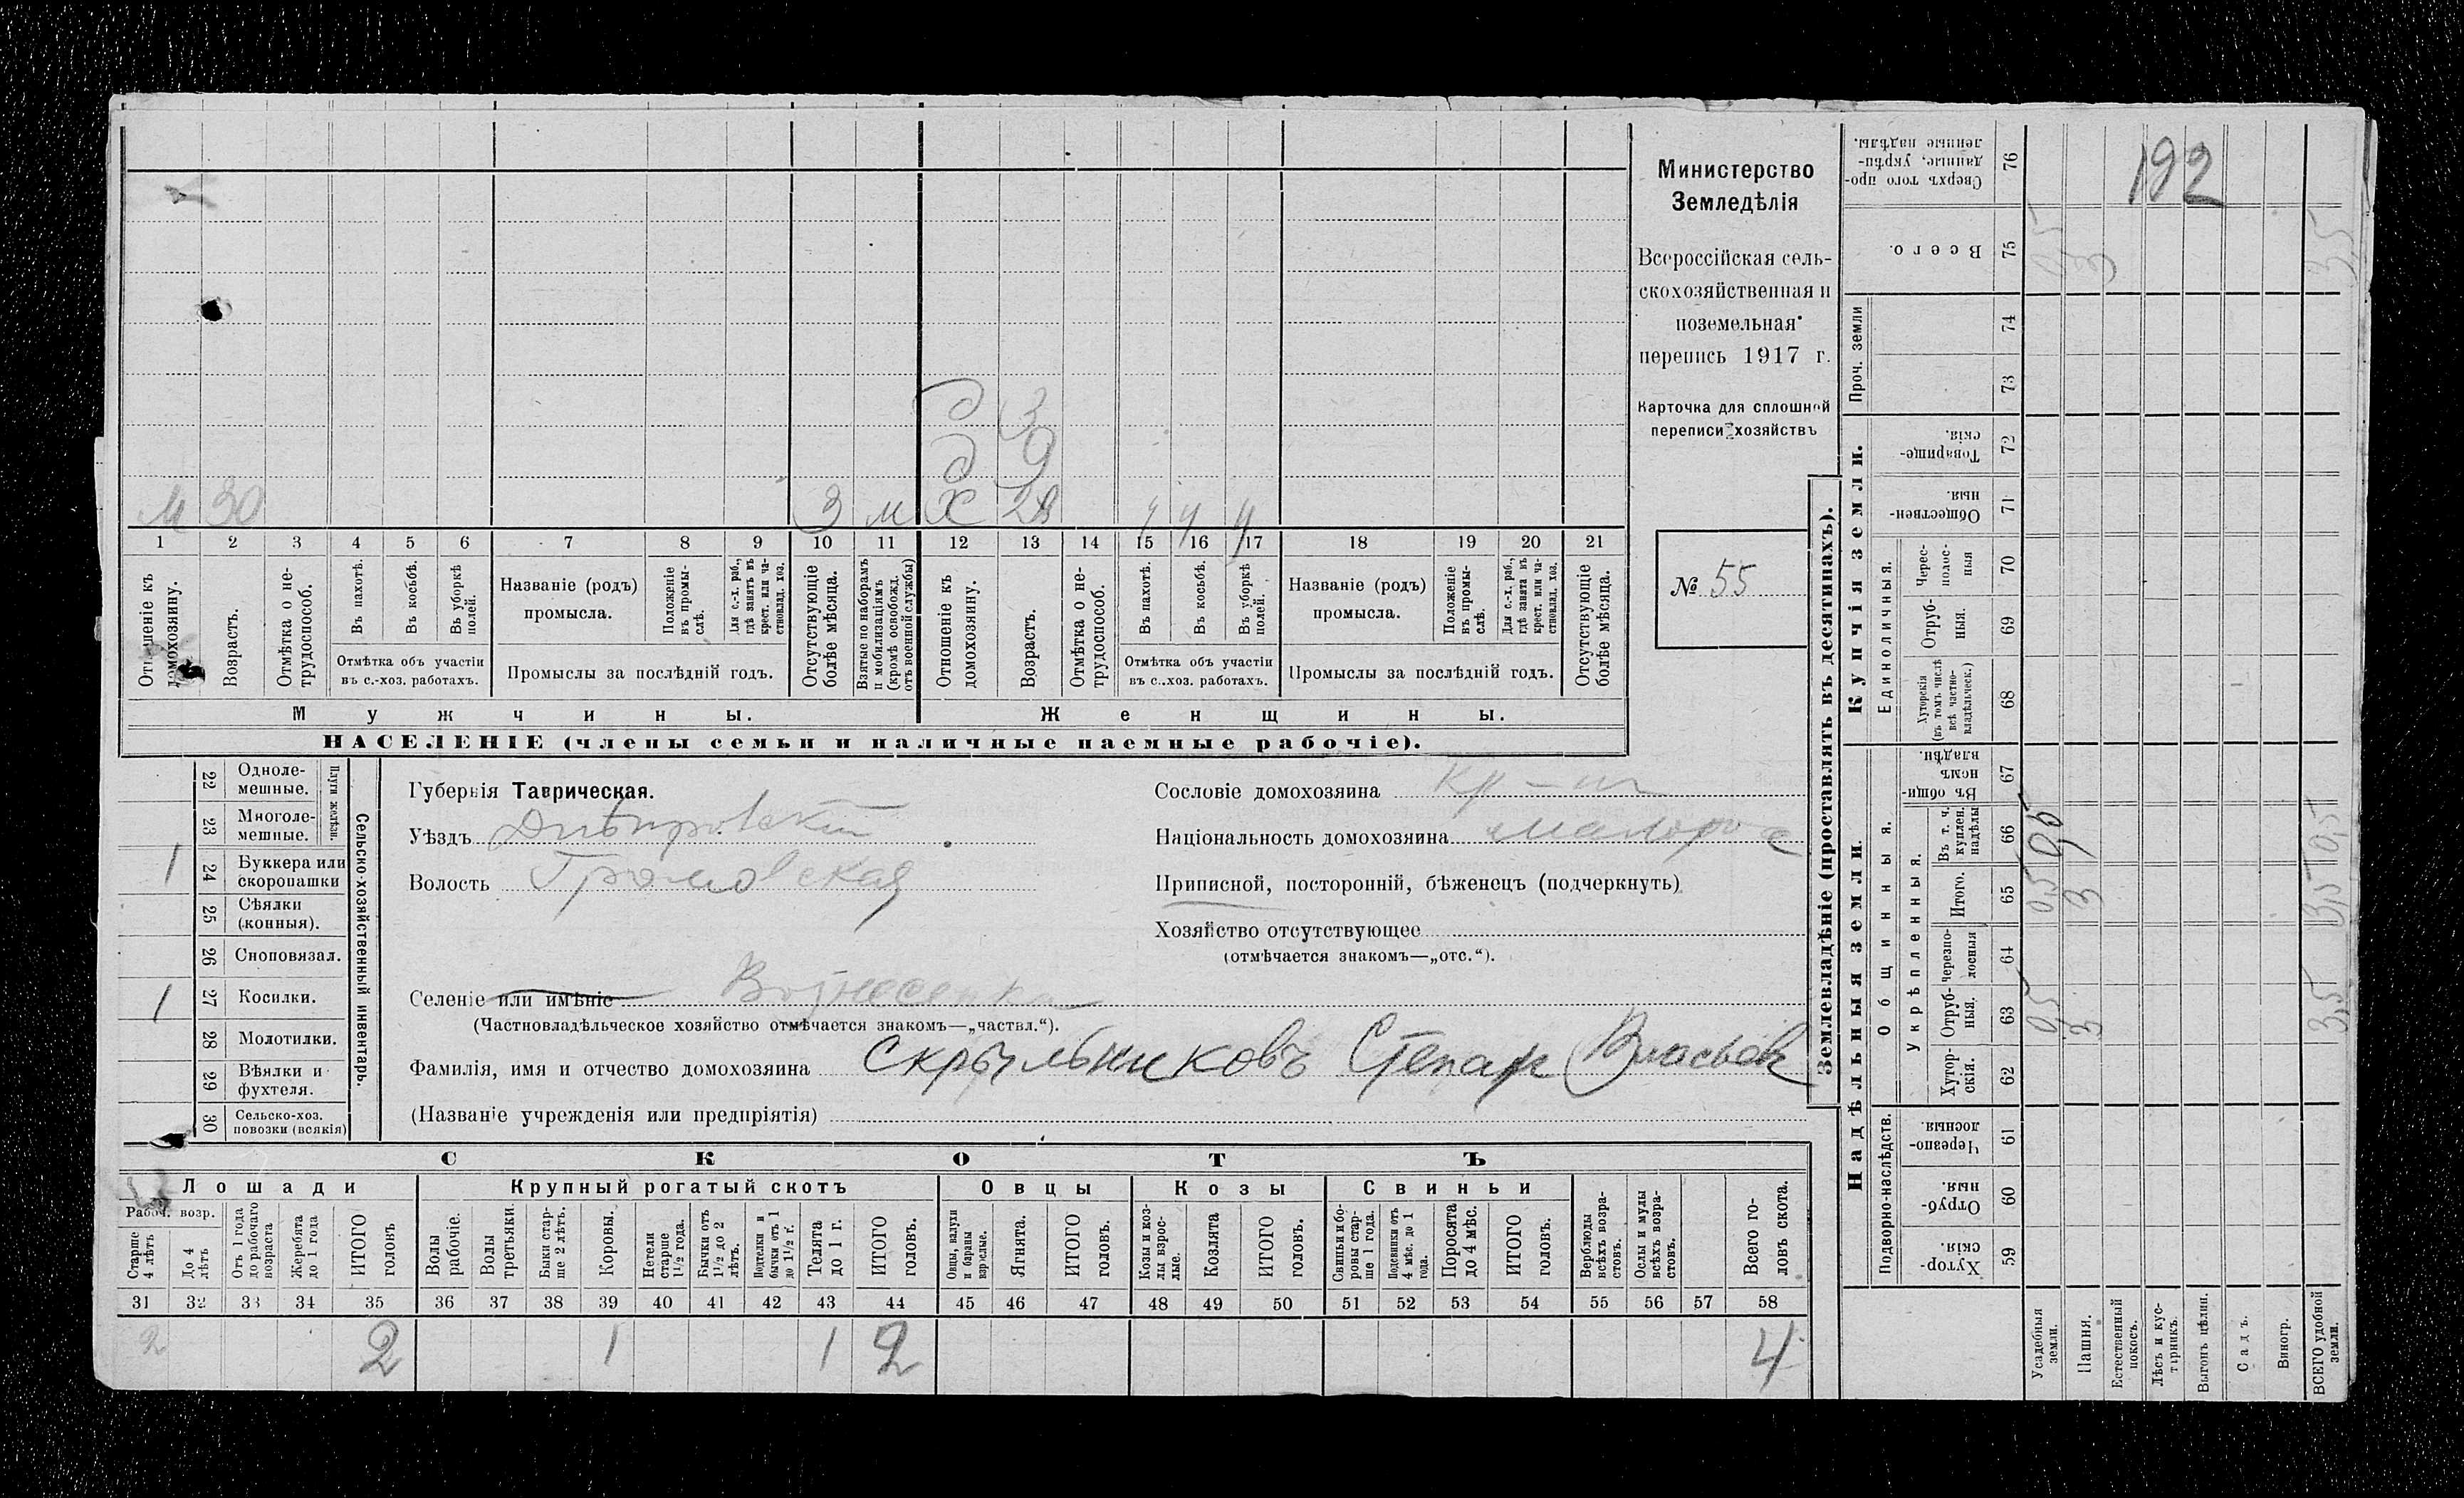 Министерство
Земледѣлія
Всероссійская сель-
скохозяйственная и
поземельная
перепись 1917 г.
Карточка для сплошной
переписи хозяйствъ
№ 55
192
д 3
д 9
м 30 3 м х 28 ч ч ч
1 2 3 4 5 6 7 8 9 10 11 12 13 14 15 16 17 18 19 20 21
Отношеніе къ домохозяину.
Возрастъ.
Отмѣтка о не-трудоспособ.
Въ пахотѣ.
Въ косьбѣ.
Въ уборкѣ полей.
Отмѣтка объ участіи
въ с.-хоз. работахъ.
Названіе (родъ)
промысла.
Положеніе въ промы-слѣ.
Для с.-х. раб., гдѣ занятъ въ крест. или ча-стновлад. хоз.
Промыслы за послѣдній годъ.
Отсутствующіе болѣе мѣсяца.
Взятые по наборамъ и мобилизаціямъ (кромѣ освобожд. отъ военной службы)
Отношеніе къ домохозяину.
Возрастъ.
Отмѣтка о не-трудоспособ.
Въ пахотѣ.
Въ косьбѣ.
Въ уборкѣ полей.
Отмѣтка объ участіи
въ с.-хоз. работахъ.
Названіе (родъ)
промысла.
Положеніе въ промы-слѣ.
Для с.-х. раб., гдѣ занята въ крест. или ча-стновлад. хоз.
Промыслы за послѣдній годъ.
Отсутствующіе болѣе мѣсяца.
Мужчины. Женщины.
НАСЕЛЕНІЕ (члены семьи и наличные наемные рабочіе).
Сельско-хозяйственный инвентарь.
Плуги желѣзн.
22 Одноле-мешные.
23 Многоле-мешные.
1 24 Буккера или скоропашки
25 Сѣялки (конныя).
26 Сноповязал.
1 27 Косилки.
28 Молотилки.
29 Вѣялки и фухтеля.
30 Сельско-хоз. повозки (всякія)
Губернія Таврическая.
Уѣздъ Днѣпровскій
Волость Громовская
Селеніе или имѣніе Вознесенка
(Частновладѣльческое хозяйство отмѣчается знакомъ—„частвл.“).
Фамилія, имя и отчество домохозяина Скрыльниковъ Степан Власьев
(Названіе учрежденія или предпріятія)
Сословіе домохозяина кр-ин
Національность домохозяина малорос
Приписной, посторонній, бѣженецъ (подчеркнуть)
Хозяйство отсутствующее
(отмѣчается знакомъ—„отс.“).
СКОТЪ
Лошади Крупный рогатый скотъ Овцы Козы Свиньи
Рабоч. возр.
Старше 4 лѣтъ
До 4 лѣтъ
Отъ 1 года до рабочаго возраста
Жеребята до 1 года
ИТОГО головъ
Волы рабочіе.
Волы третьяки.
Быки стар-ше 2 лѣтъ.
Коровы.
Нетели старше 1½ года.
Бычки отъ 1½ до 2 лѣтъ.
Подтелки и бычки отъ 1 до 1½ г.
Телята до 1 г.
ИТОГО головъ.
Овцы, валухи и бараны взрослые.
Ягнята.
ИТОГО головъ.
Козы и коз-лы взрос-лые.
Козлята
ИТОГО головъ.
Свиньи и бо-ровы стар-ше 1 года.
Подсвинки отъ 4 мѣс. до 1 года.
Поросята до 4 мѣс.
ИТОГО головъ.
Верблюды всѣхъ возра-стовъ.
Ослы и мулы всѣхъ возра-стовъ.
Всего го-ловъ скота.
31 32 33 34 35 36 37 38 39 40 41 42 43 44 45 46 47 48 49 50 51 52 53 54 55 56 57 58
2 2 1 1 2 4
Землевладѣніе (проставлять въ десятинахъ).
Надѣльныя земли. Купчія земли.
Подворно-наслѣдств.
Общинныя.
Укрѣпленныя.
Единоличныя.
Проч. земли
59 Хутор-скія.
60 Отруб-ныя.
61 Черезпо-лосныя.
62 Хутор-скія.
63 Отруб-ныя. 0,5 3 3,5
64 черезпо-лосныя
65 Итого. 0,5 3 3,5
66 Въ т. ч. куплен. надѣлы 0,5 0,5
67 Въ общи-номъ владѣн.
68 Хуторскія (въ томъ числѣ всѣ частно-владѣльческ.)
69 Отруб-ныя.
70 Черес-полос-ныя
71 Обществен-ныя.
72 Товарище-скія.
73
74
75 Всего. 0,5 3 3,5
76 Сверхъ того про-данные, укрѣп-ленные надѣлы.
Усадебныя земли.
Пашня.
Естественный покосъ.
Лѣсъ и кус-тарникъ.
Выгонъ цѣлин.
Садъ.
Виногр.
ВСЕГО удобной земли.